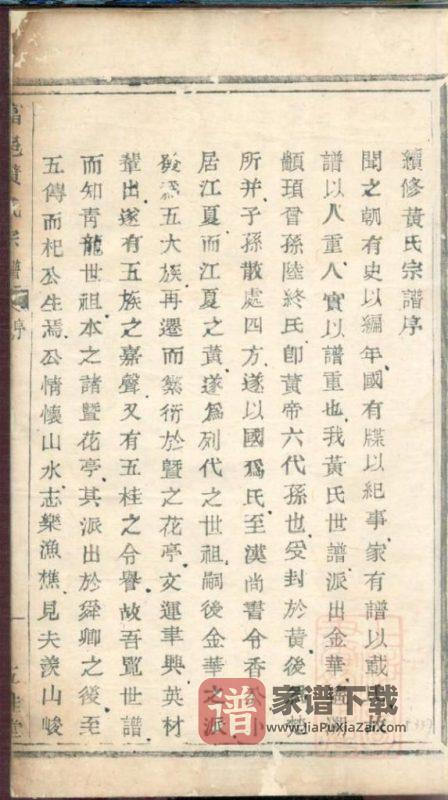 續修黃氏宗譜序
聞之朝有史以編年國有牒以紀事家有譜以載
譜以人重人實以譜重也我黃氏世譜派出金華
顓頊曾孫陸終氏卽黃帝六代孫也受封於黃後
所并子孫散處四方遂以國爲氏至漢尚書令香公
居江夏而江夏之黃遂爲列代之世祖嗣後金華之派
發爲五大族再遷而繁衍於暨之花亭文運聿興英材
輩出遂有五族之嘉聲又有五桂之令譽故吾覽世譜
而知靑龍世祖本之諸暨花亭其派出於舜卿之後至
五傳而杞公生焉公情懷山水志樂漁樵見夫羨山峻
邑黃氏宗譜
序
桂堂
譜
家谱下载
www.JiaPuXiaZai.com